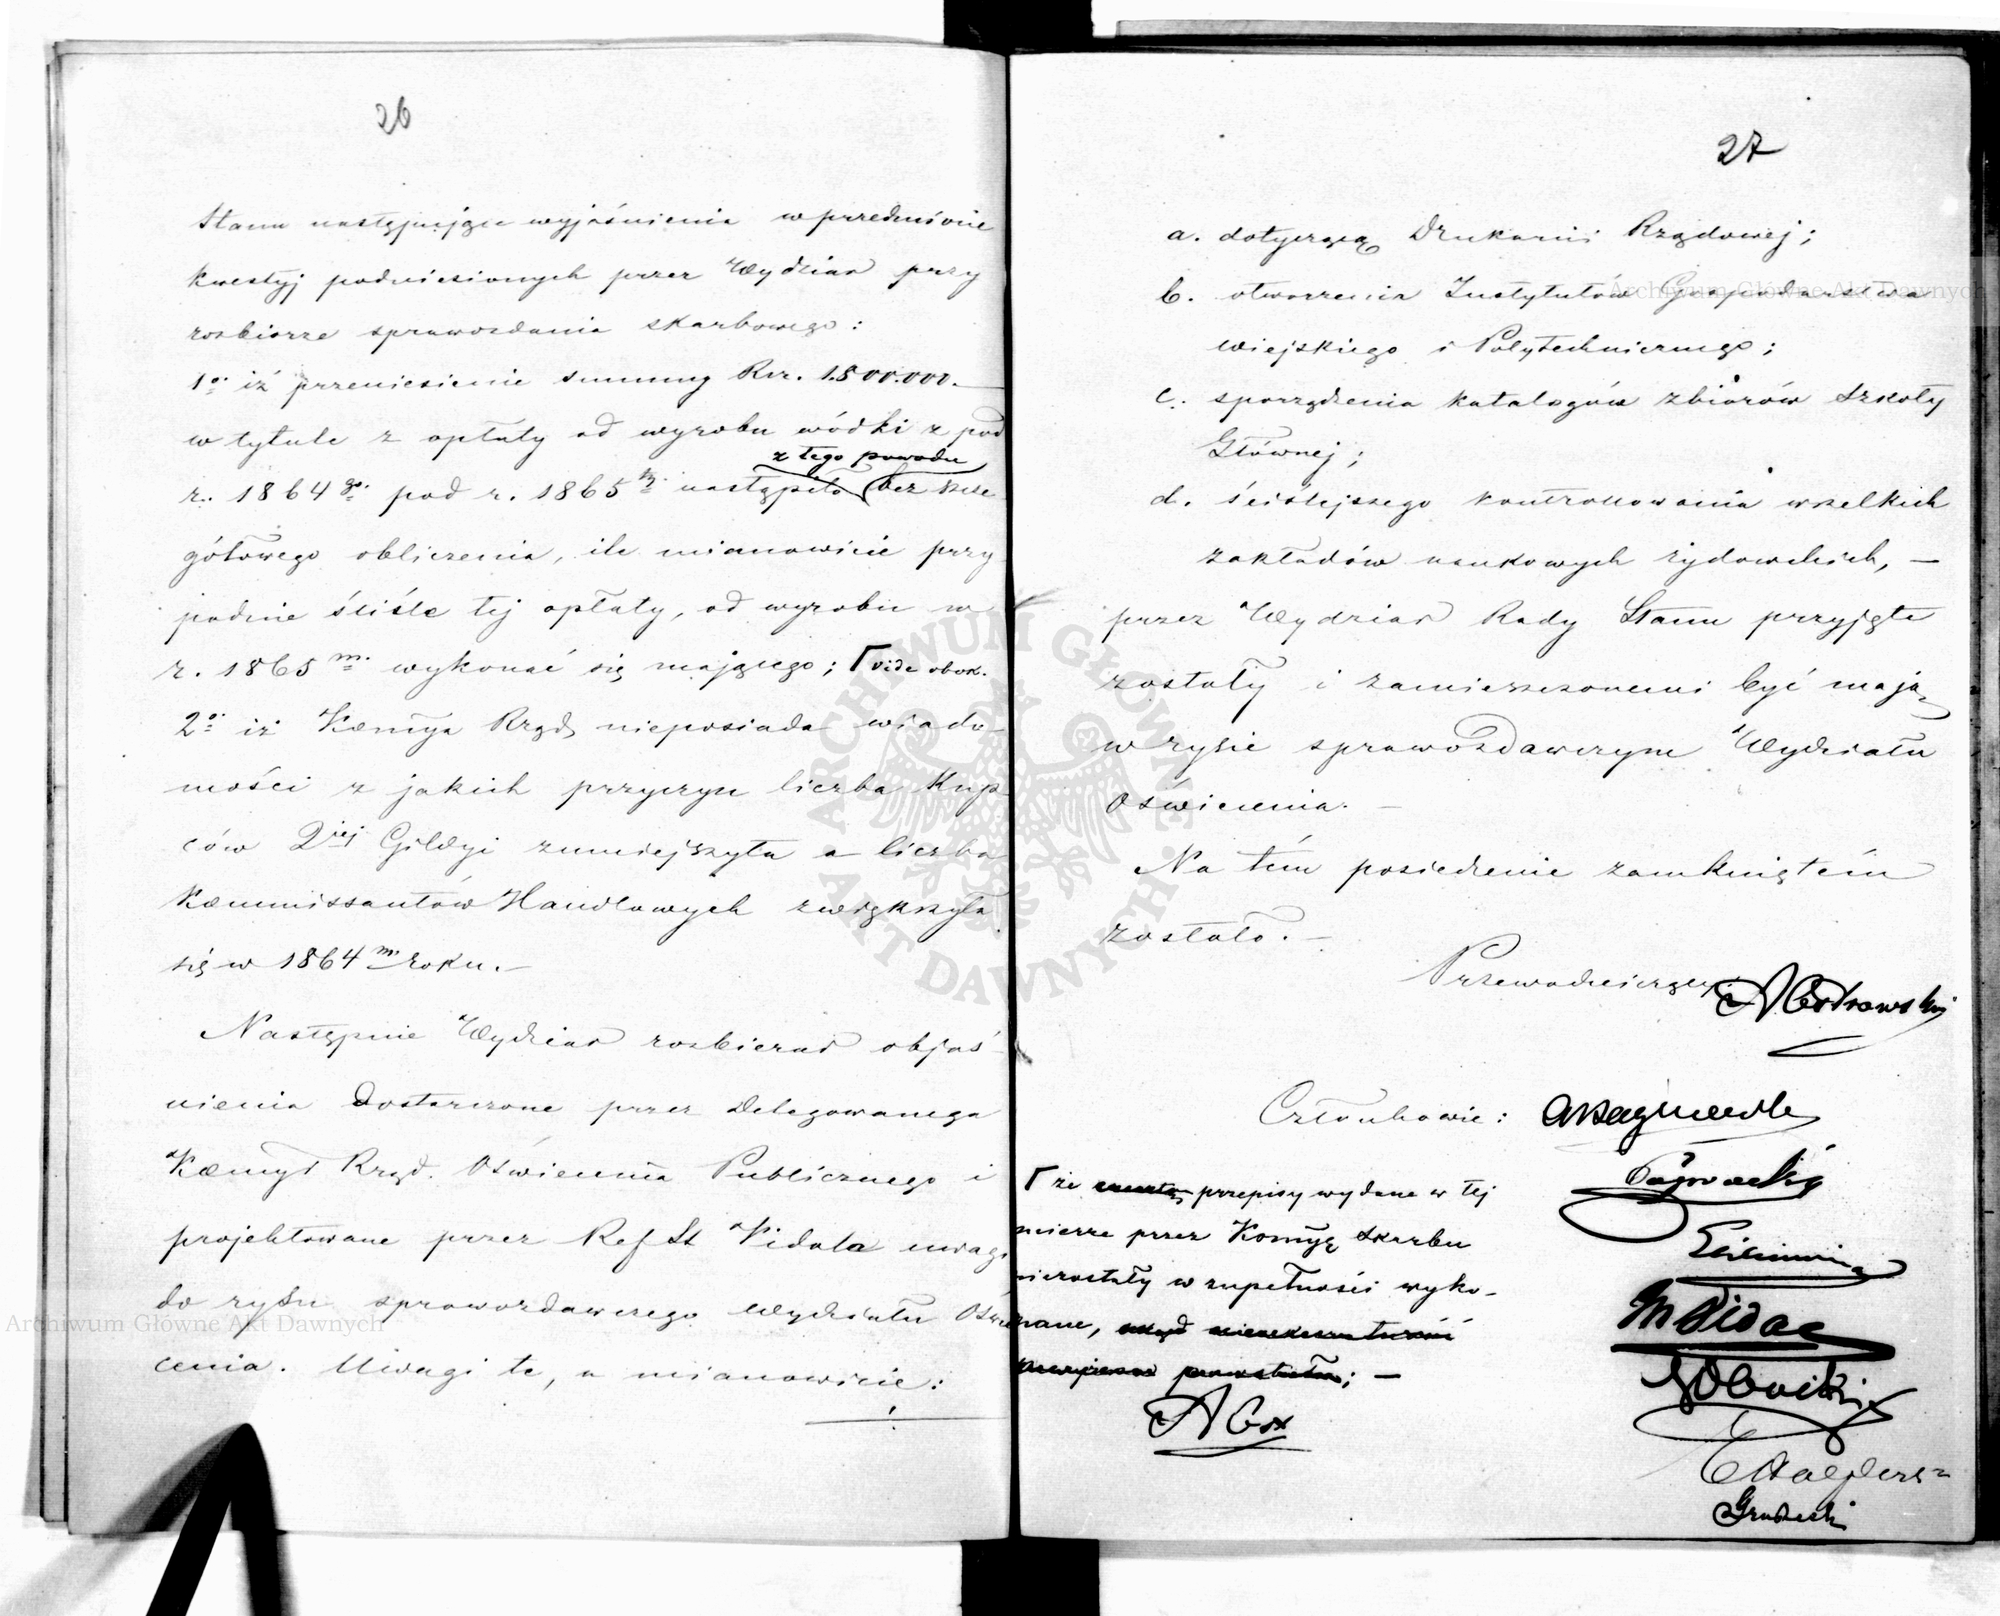 26
Stanu następujące wyjaśnienia w przedmiocie
kwestyj podniesionych przez Wydział przy
rozbiorze sprawozdania skarbowego:
1o. iż przeniesienie summy Rsr. 1.500.000.—
w tytule z opłaty od wyrobu wódki z pod
z tego powodu
r. 1864 go. pod r. 1865 ty. nastąpiło bez szcze
gółowego obliczenia, ile mianowicie przy
padnie ściśle tej opłaty, od wyrobu w
r. 1865 m. wykonać się mającego; Γ vide obok.
2o. iż Kommya Rząd. nieposiada wiado-
mości z jakich przyczyn liczba Kup
ców 2iej Gildyi zmniejszyła a liczba
Kommissantów Handlowych zwiększyła
się w 1864 m. roku.—
Następnie Wydział rozbierał objaś-
nienia dostarczone przez Delegowanego
Kommyi Rząd. Oświecenia Publicznego i
projektowane przez Ref. St. Vidala uwagi
do rysu sprawozdawczego Wydziału Oświe
cenia. Uwagi te, a mianowicie:
27
a. dotycząca Drukarni Rządowej;
b. otworzenia Instytutów Gospodarstwa
wiejskiego i Politechnicznego;
c. sporządzenia katalogów zbiorów Szkoły
Głównej;
d. ściślejszego kontrolowania wszelkich
zakładów naukowych żydowskich, —
przez Wydział Rady Stanu przyjęte
zostały i zamieszczonemi być mają
w rysie sprawozdawczym Wydziału
Oświecenia.—
Na tém posiedzenie zamkniętém
zostało.—
Przewodniczący AOstrowski
Członkowie:
Γ że przepisy wydane w tej
mierze przez Kommyę Skarbu
niezostały w zupełności wyko-
nane, ; —
AOst
MVidal
Grabecki
ARCHIWUM GŁÓWNE AKT DAWNYCH
Archiwum Główne Akt Dawnych
Archiwum Główne Akt Dawnych